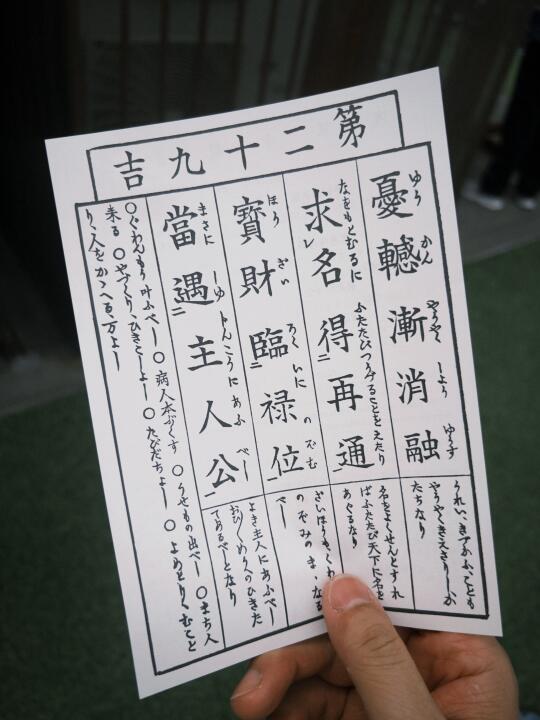 第二十九吉
憂轗漸消融
ゆう かん やうやく しよう ゆうす
うれい、きづかふ、ことも
やうやくきえさりしか
たちなり
求レ名得二再通一
なをもとむるに ふたたびつうずることをえたり
名をよくせんとすれ
ばふたたび天下に名を
あぐるなり
寶財臨二禄位一
ほう ざい ろく ゐに のぞむ
のぞみのまゝなる
べし
當遇二主人公一
まさに しゆじんこうに あふべし
よき主人にあふべし
てあるべしとなり
○ぐわんもう叶ふべし ○病人本ぶくす ○うせもの出べし ○まち人
来る ○やづくり、ひきこしよし ○たびだちよし ○よめとり、むこと
り、人をかゝへる、万よし